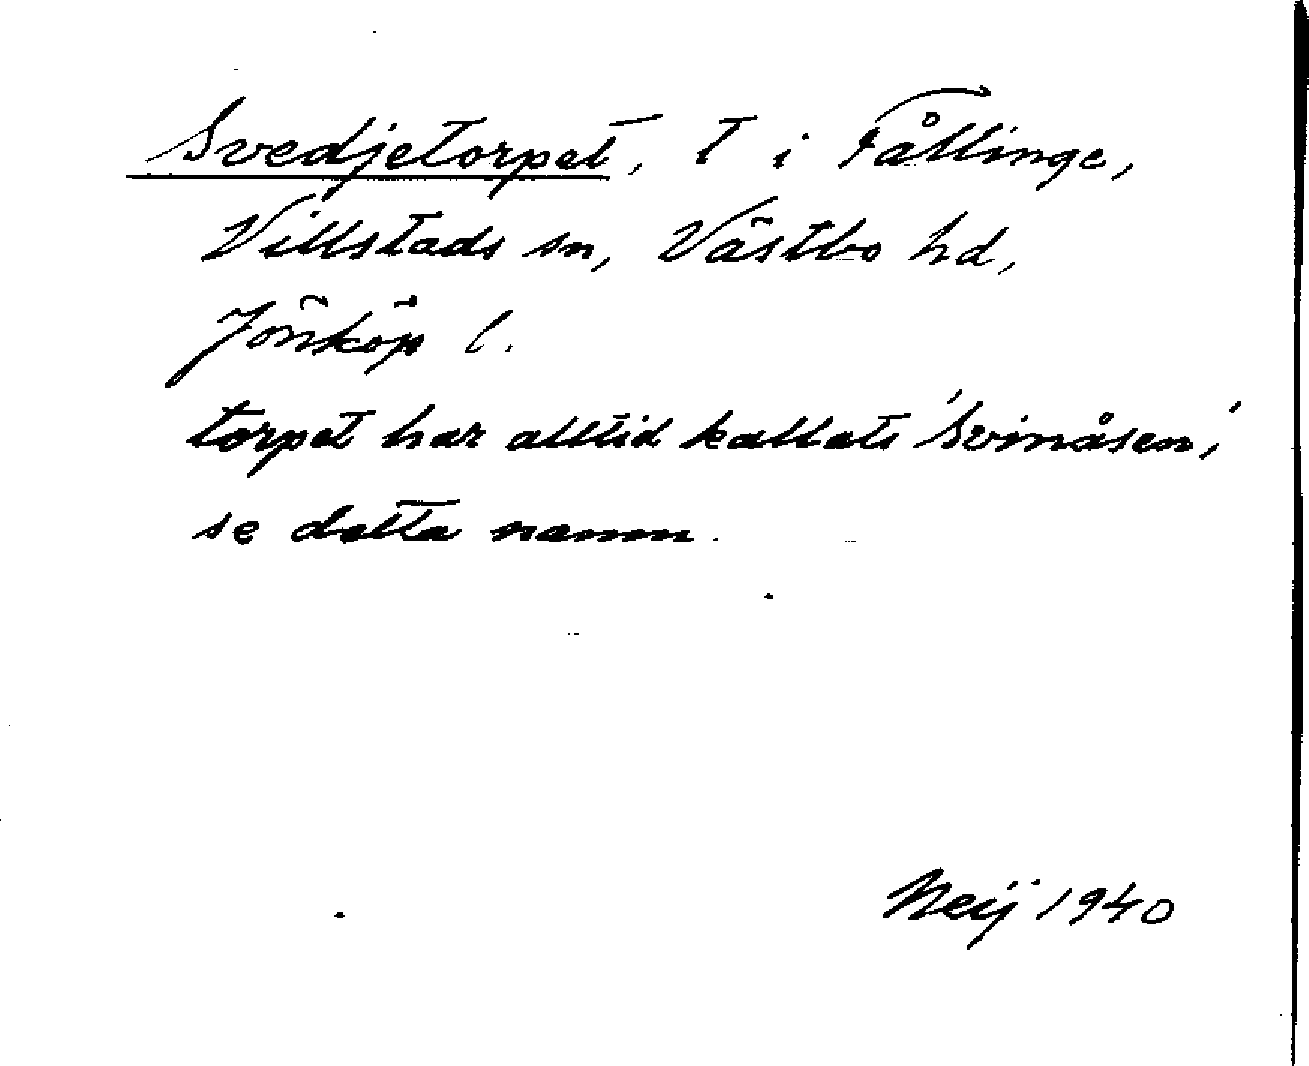 Svedjetorpet, T i Fållinge,
Villstads sn, Västbo hd,
Jönköp l.
torpet har alltid kallats 'Svinåsen,'
se detta namn.
Neij 1940